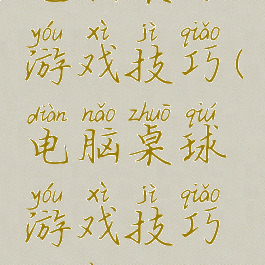 yóu xì jì qiǎo
游戏技巧(
diàn nǎo zhuō qiú
电脑桌球
yóu xì jì qiǎo
游戏技巧